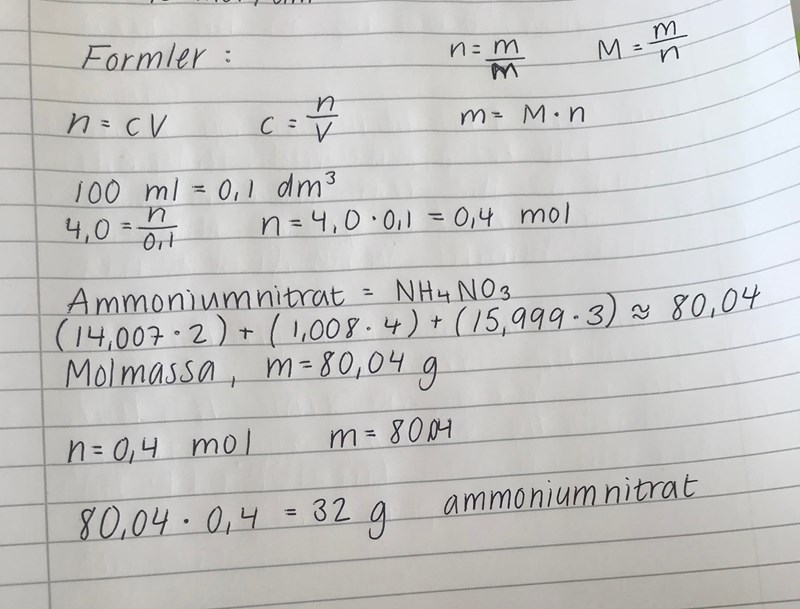 Formler : n = m/m M = m/n
n = cV c = n/V m = M · n
100 ml = 0,1 dm³
4,0 = n/0,1 n = 4,0 · 0,1 = 0,4 mol
Ammoniumnitrat = NH₄NO₃
(14,007 · 2) + (1,008 · 4) + (15,999 · 3) ≈ 80,04
Molmassa, m = 80,04 g
n = 0,4 mol m = 80,04
80,04 · 0,4 = 32 g ammoniumnitrat